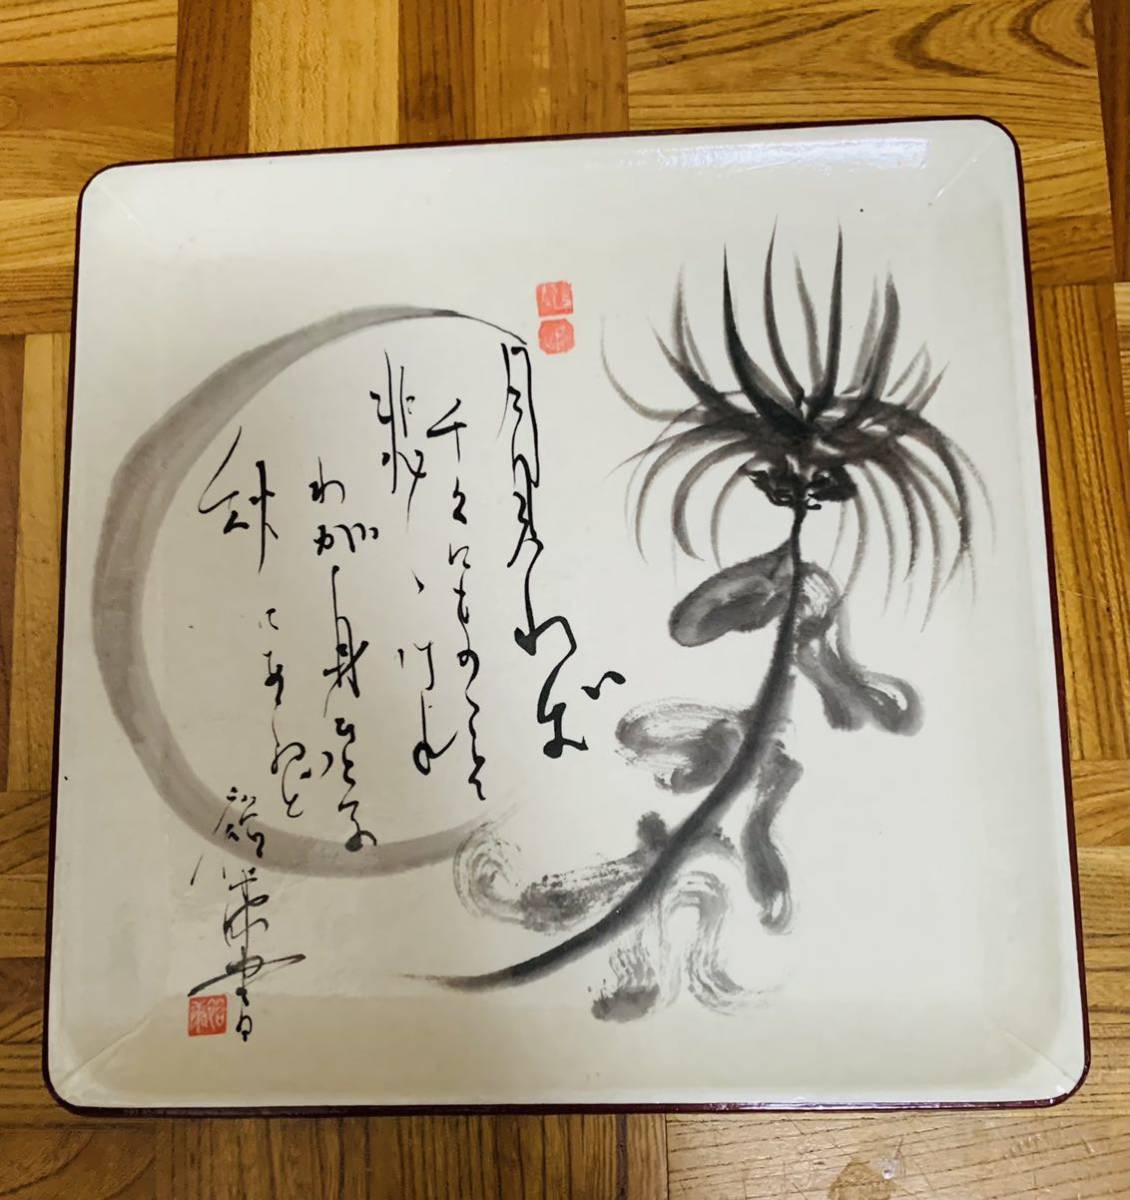 月見れば
千々にものこそ
悲しけれ
わが身一つの
秋にあらねど
書